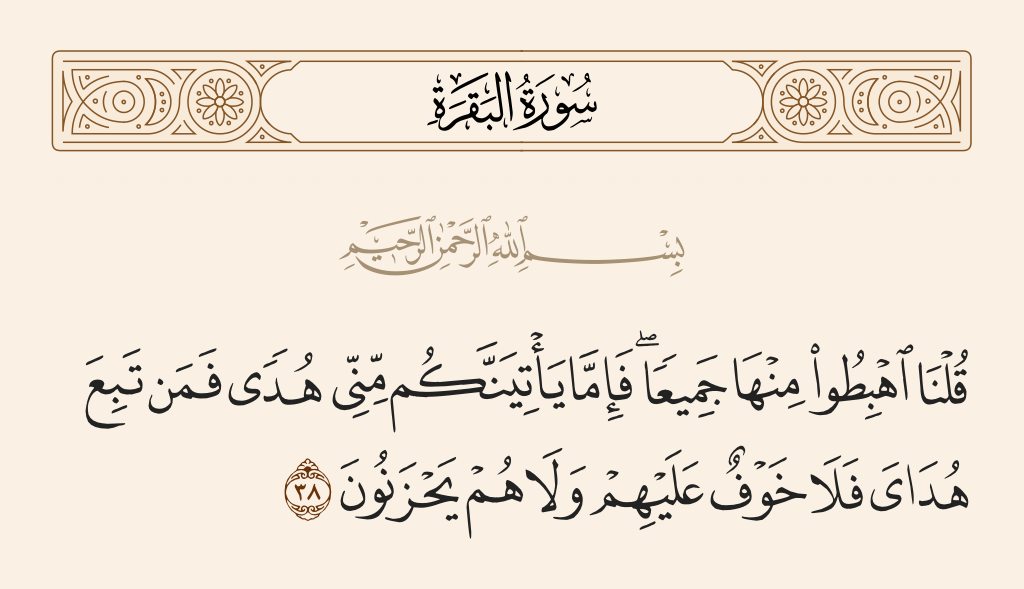 سُورَةُ البَقَرَةِ
بِسْمِ ٱللَّهِ ٱلرَّحْمَٰنِ ٱلرَّحِيمِ
قُلْنَا ٱهْبِطُوا۟ مِنْهَا جَمِيعًا ۖ فَإِمَّا يَأْتِيَنَّكُم مِّنِّى هُدًى فَمَن تَبِعَ
هُدَاىَ فَلَا خَوْفٌ عَلَيْهِمْ وَلَا هُمْ يَحْزَنُونَ ٣٨